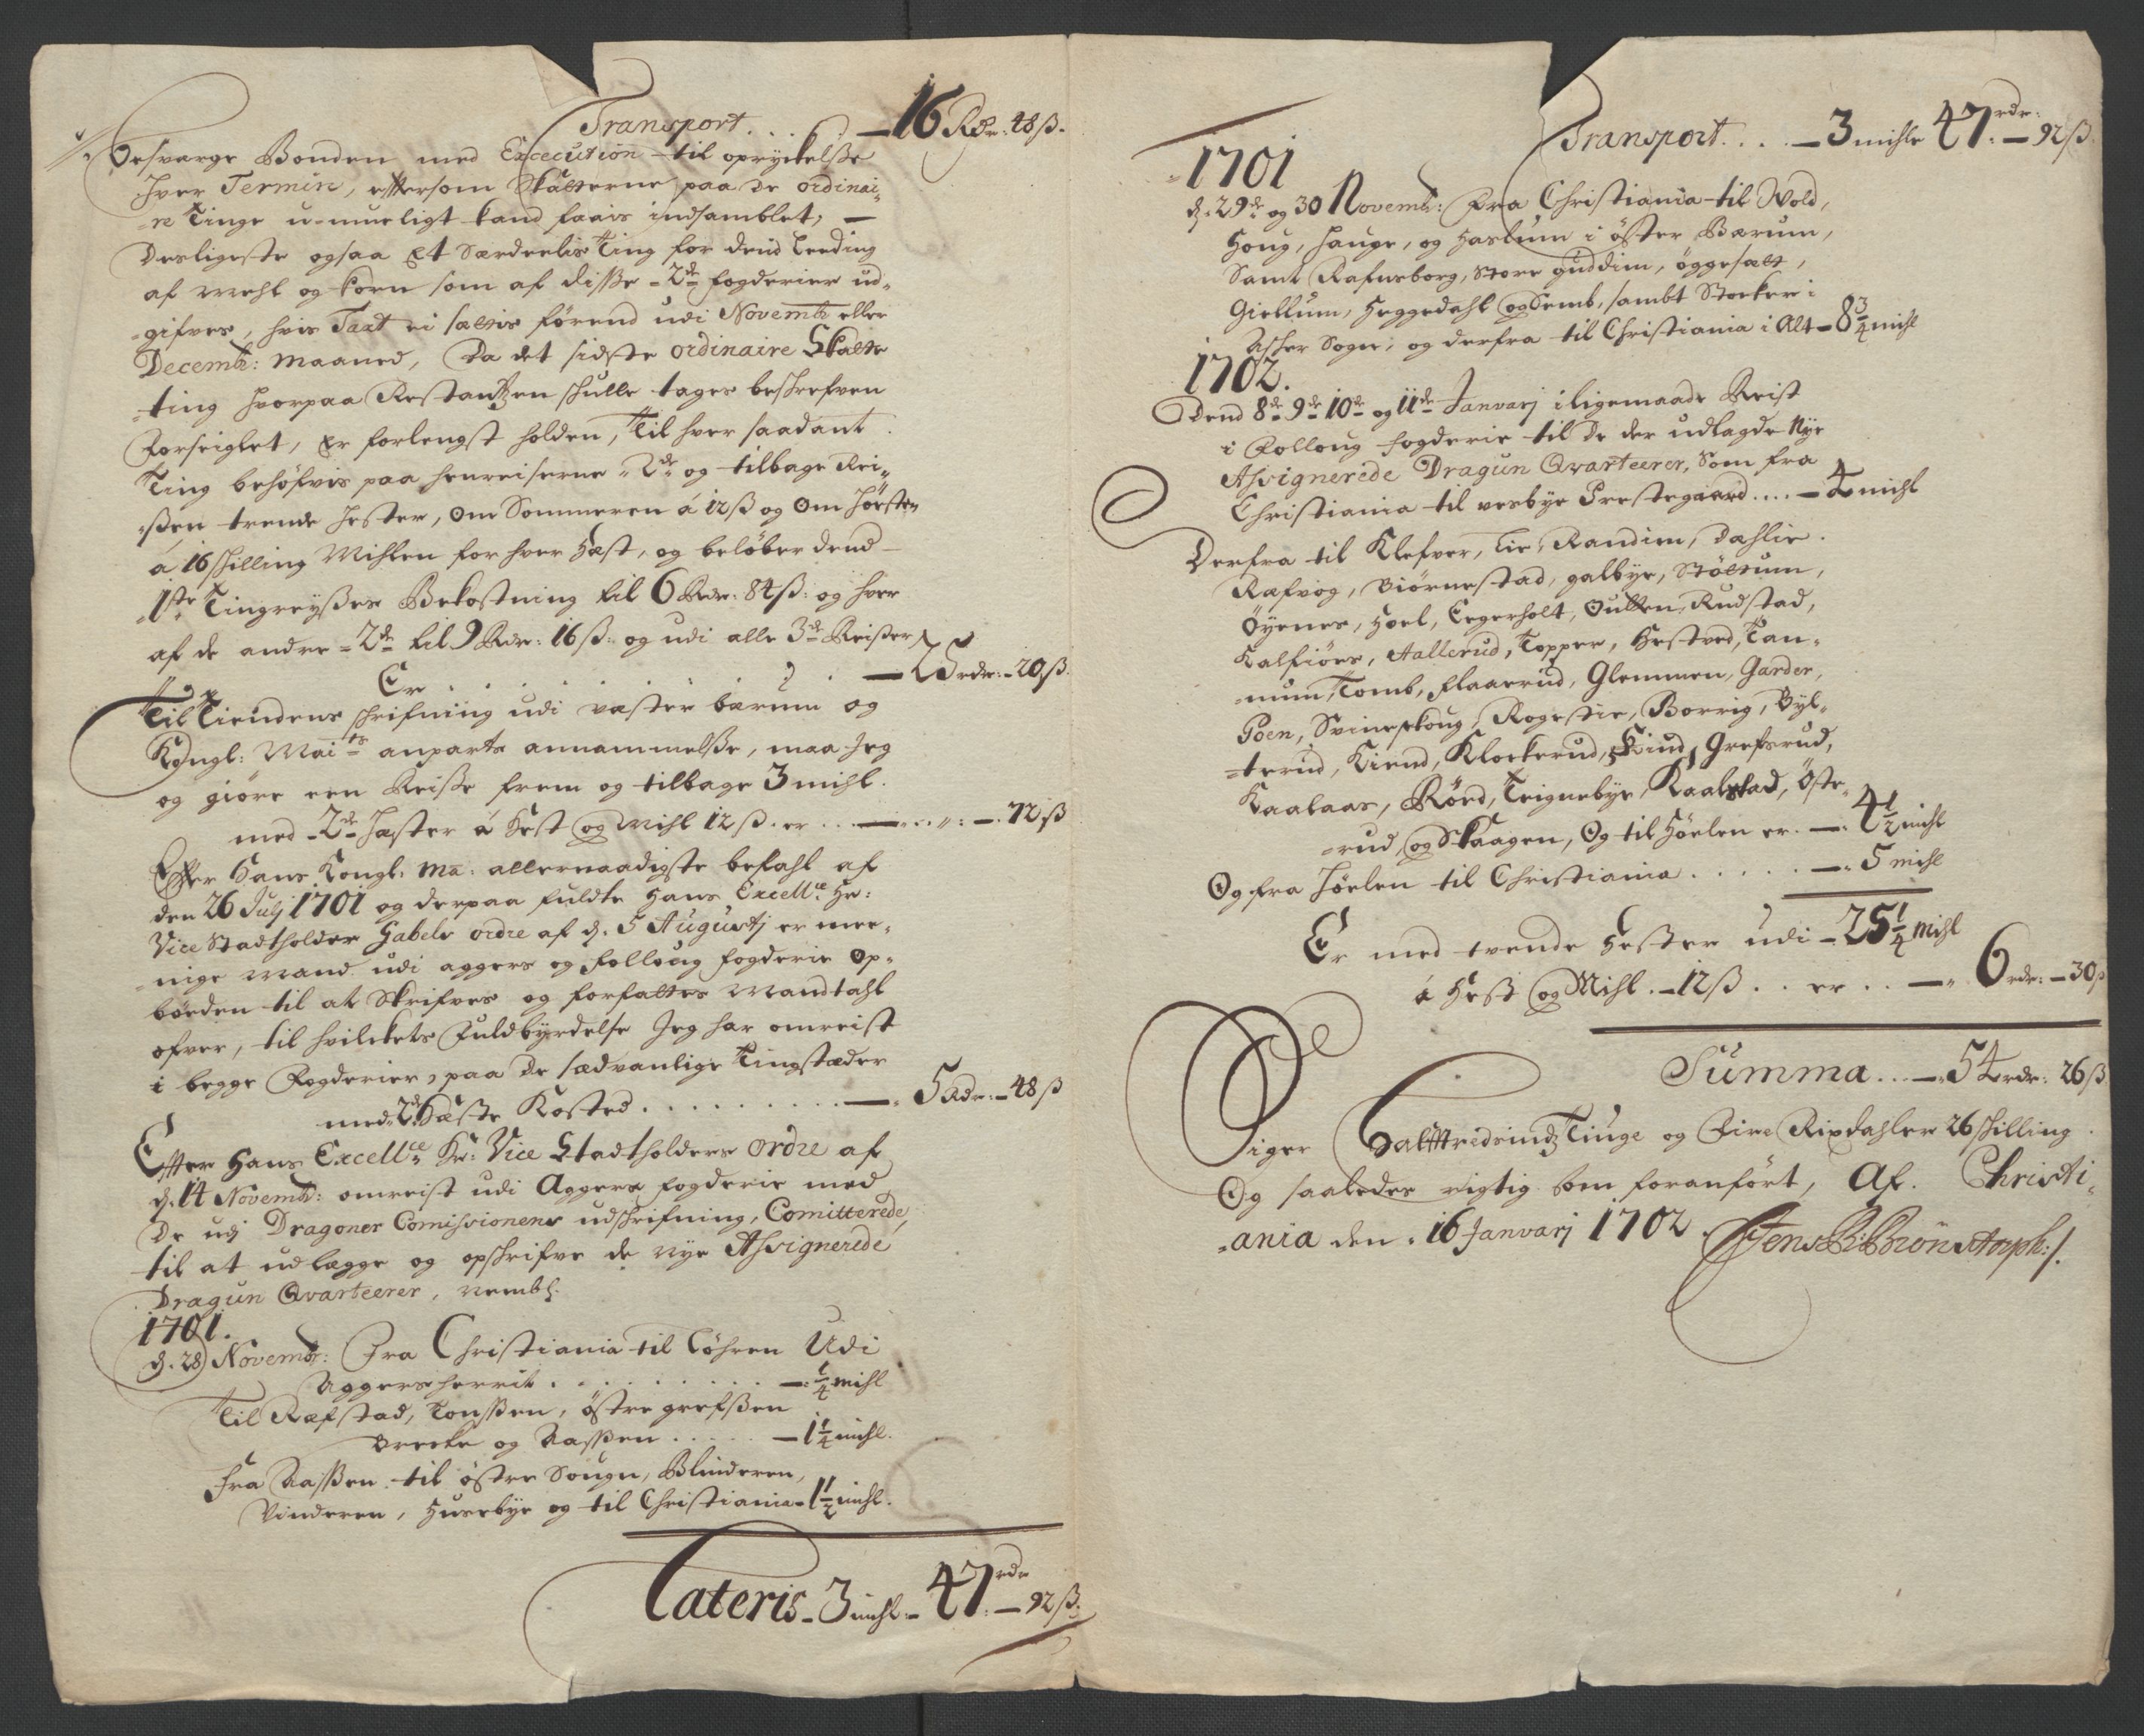 Transport . . . — 16 Rdr: 48 ß.
besvarge Bonden med Execution til oprychelse
hver Termin, eftersom Skatterne paa de ordinai-
-re Tinge u-mueligt kand faais indsamblet, —
Desligeste ogsaa Et Særdeelis Ting for dend Leeding
af Mehl og korn som af disse - 2de fogderier ud-
-gifves, hvis Taxt ei sættis førend udi Novemb: eller
Decemb: Maaned, Da det sidste ordinaire Skatte
-ting hvorpaa Restantzen skulle tages beskrefven
Forseiglet, Er forlengst holden, Til hver saadant
Ting behöfvis paa henreiserne 2de og tilbage Rei-
-ßen trende Hester, om Sommeren á 12 ß og om Høsten
á 16 skilling Mihlen for hver Hest, og beløber dend
1ste Tingreyßes Bekostning til 6 Rdr: 84 ß: og hver
af de andre - 2de til 9 Rdr: 16 ß: og udi alle 3de Reißer
Er . . . . . — 25 rdr: - 20 ß.
Til Tiendens skrifning udi væster bærum og
Kongl: Maits anparts annammelße, maa Jeg
og giøre een Reiße frem og tilbage 3 mihl.
med - 2de Hæster á Hest og Mihl 12 ß. er . . — . . — . 72 ß
Efter Hans Kongl: Ma: allernaadigste befahl af
den 26 Julj 1701 og derpaa fuldte Hans Excellce Hr:
Vice Stadtholder Gabels ordre af d. 5 Augustj er mee-
-nige Mand udi aggers og folloug fogderie op-
börden til at Skrifves og forfattes Mandtahl
ofver, til hvilckets Fuldbyrdelse Jeg har omreist
i begge Fogderier, paa de sædvanlige Tingstæder
med 2de Hæste Kosted . . . . . . . . — 5 Rdr: - 48 ß
Efter Hans Excellce Hr: Vice Stadtholders ordre af
d. 14 Novemb: omreist udi Aggers fogderie med
De udj Dragoner Comissionens udskrifning, Comitterede,
til at udlægge og opskrifve de nye Assignerede
Dragun Qvarteerer, nembl.
1701.
d. 28 Novembr: Fra Christiania til Løhren Udi
Aggersherrit . . . . . . . . — 1/4 mihl
Til Refstad, Tonßen, østre grefßen
Brecke og Kaßßen . . . . — 1 1/4 mihl.
Fra Kaßßen til østre Sougn, Blinderen,
Vinderen, Husebye og til Christiania - 1 1/2 mihl.
Lateris - 3 mihl - 47 rdr — 92 ß.
Transport . . . . — 3 mihle 47 rdr: — 92 ß
1701
d. 29de og 30 Novemb: Fra Christiania til Wold,
Houg, Hauge, og Haslum i øster Bærum,
Samt Rafnsborg, Store guddim, öggesætt,
Giellum, Heggedahl og Semb, sambt Stocker i
Asker Sogn, og derfra til Christiania i Alt - 8 3/4 mihl
1702.
Dend 8de 9de 10de og 11de Januarj iligemaade Reist
i Folloug fogderie til De der udlagde Nye
Assignerede Dragun Qvarteerer, Som fra
Christiania til vesbye Prestegaard . . . . — 4 mihl
Derfra til Klefver, Lie, Randim, Dahlie.
Ræfvog, Biörnestad, galbye, Støttum,
Öyenes, Hoel, Eegerholt, Oulten, Rudstad,
Kalfiöes, Aallerud, Topper, Hestved, Tan-
-num, Tomb, Flaarud, Glemmen, Garder,
Poen, Svineskoug, Rogestie, Borrig, Byl-
-terud, Kiend, Klockerud, Kiud, Grefsrud,
Kaalaas, Röed, Teignebye, Kaalstad, Öste-
-rud, og Skaagen, Og til Höelen er. — 4 1/2 mihl
Og fra Höelen til Christiania . . . . . — 5 mihl
Er med tvende Hester udi - 25 1/4 Mihl
á Hest og Mihl. - 12 ß . . er . . — 6 rdr: - 30 ß
Summa . . — 54 rdr: 26 ß
Siger Halfftredsindz Tiuge og Fire Rixdahler 26 skilling
Og saaledes rigtig som foranfört, Af. Christi-
-ania den 16 Januarj 1702